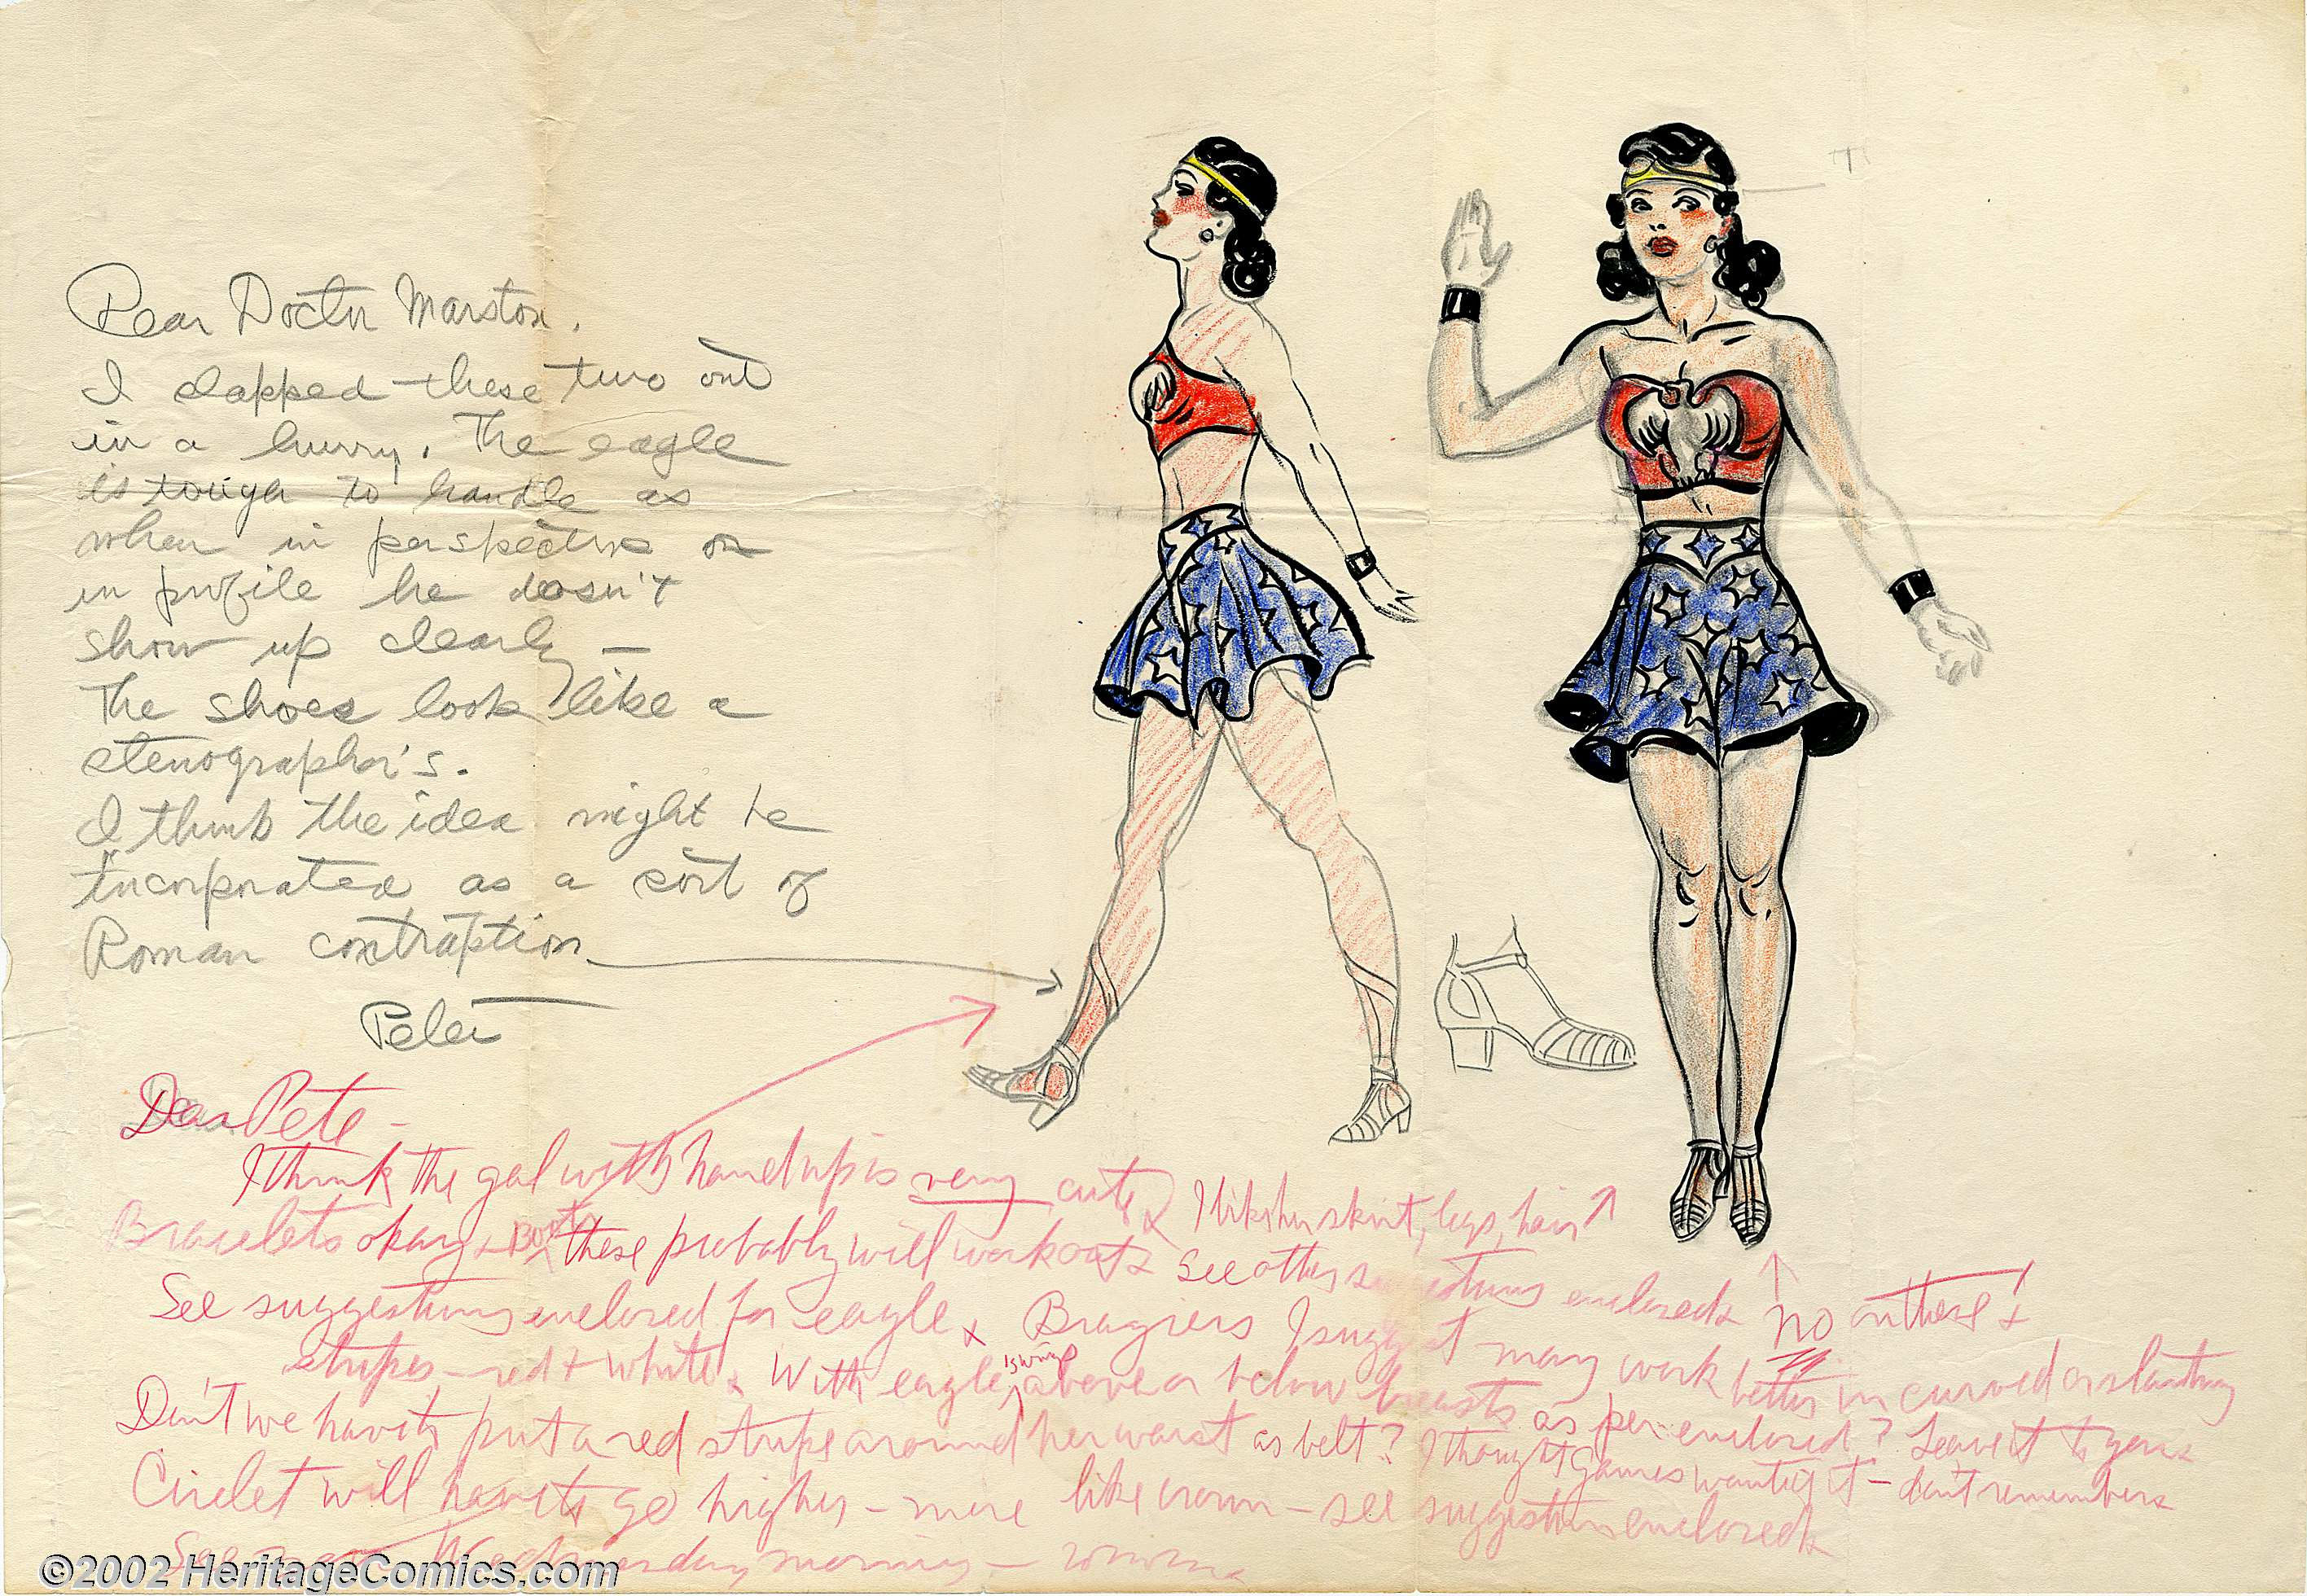 Dear Doctor Marston.
I slapped these two out
in a hurry. The eagle
is tough to handle as
when in perspective or
in profile he doesn't
show up clearly —
The shoes look like a
stenographer's.
I think the idea might be
incorporated as a sort of
Roman contraption
Peter
Dear Pete —
I think the gal with hand up is very cute. I like her skirt, legs, hair
Bracelets okay + Boots these probably will work out. See other suggestions enclosed.
No on these!
See suggestions enclosed for eagle. Bragiers I suggest may work better in curved or slanting
stripes — red + white. With eagle's wings above or below breasts as per enclosed? Leave it to you.
Don't we have to put a red stripe around her waist as belt? I thought Gaines wanted it — don't remember.
Circlet will have to go higher — more like crown — see suggestion enclosed.
See Wednesday morning —
©2002 HeritageComics.com